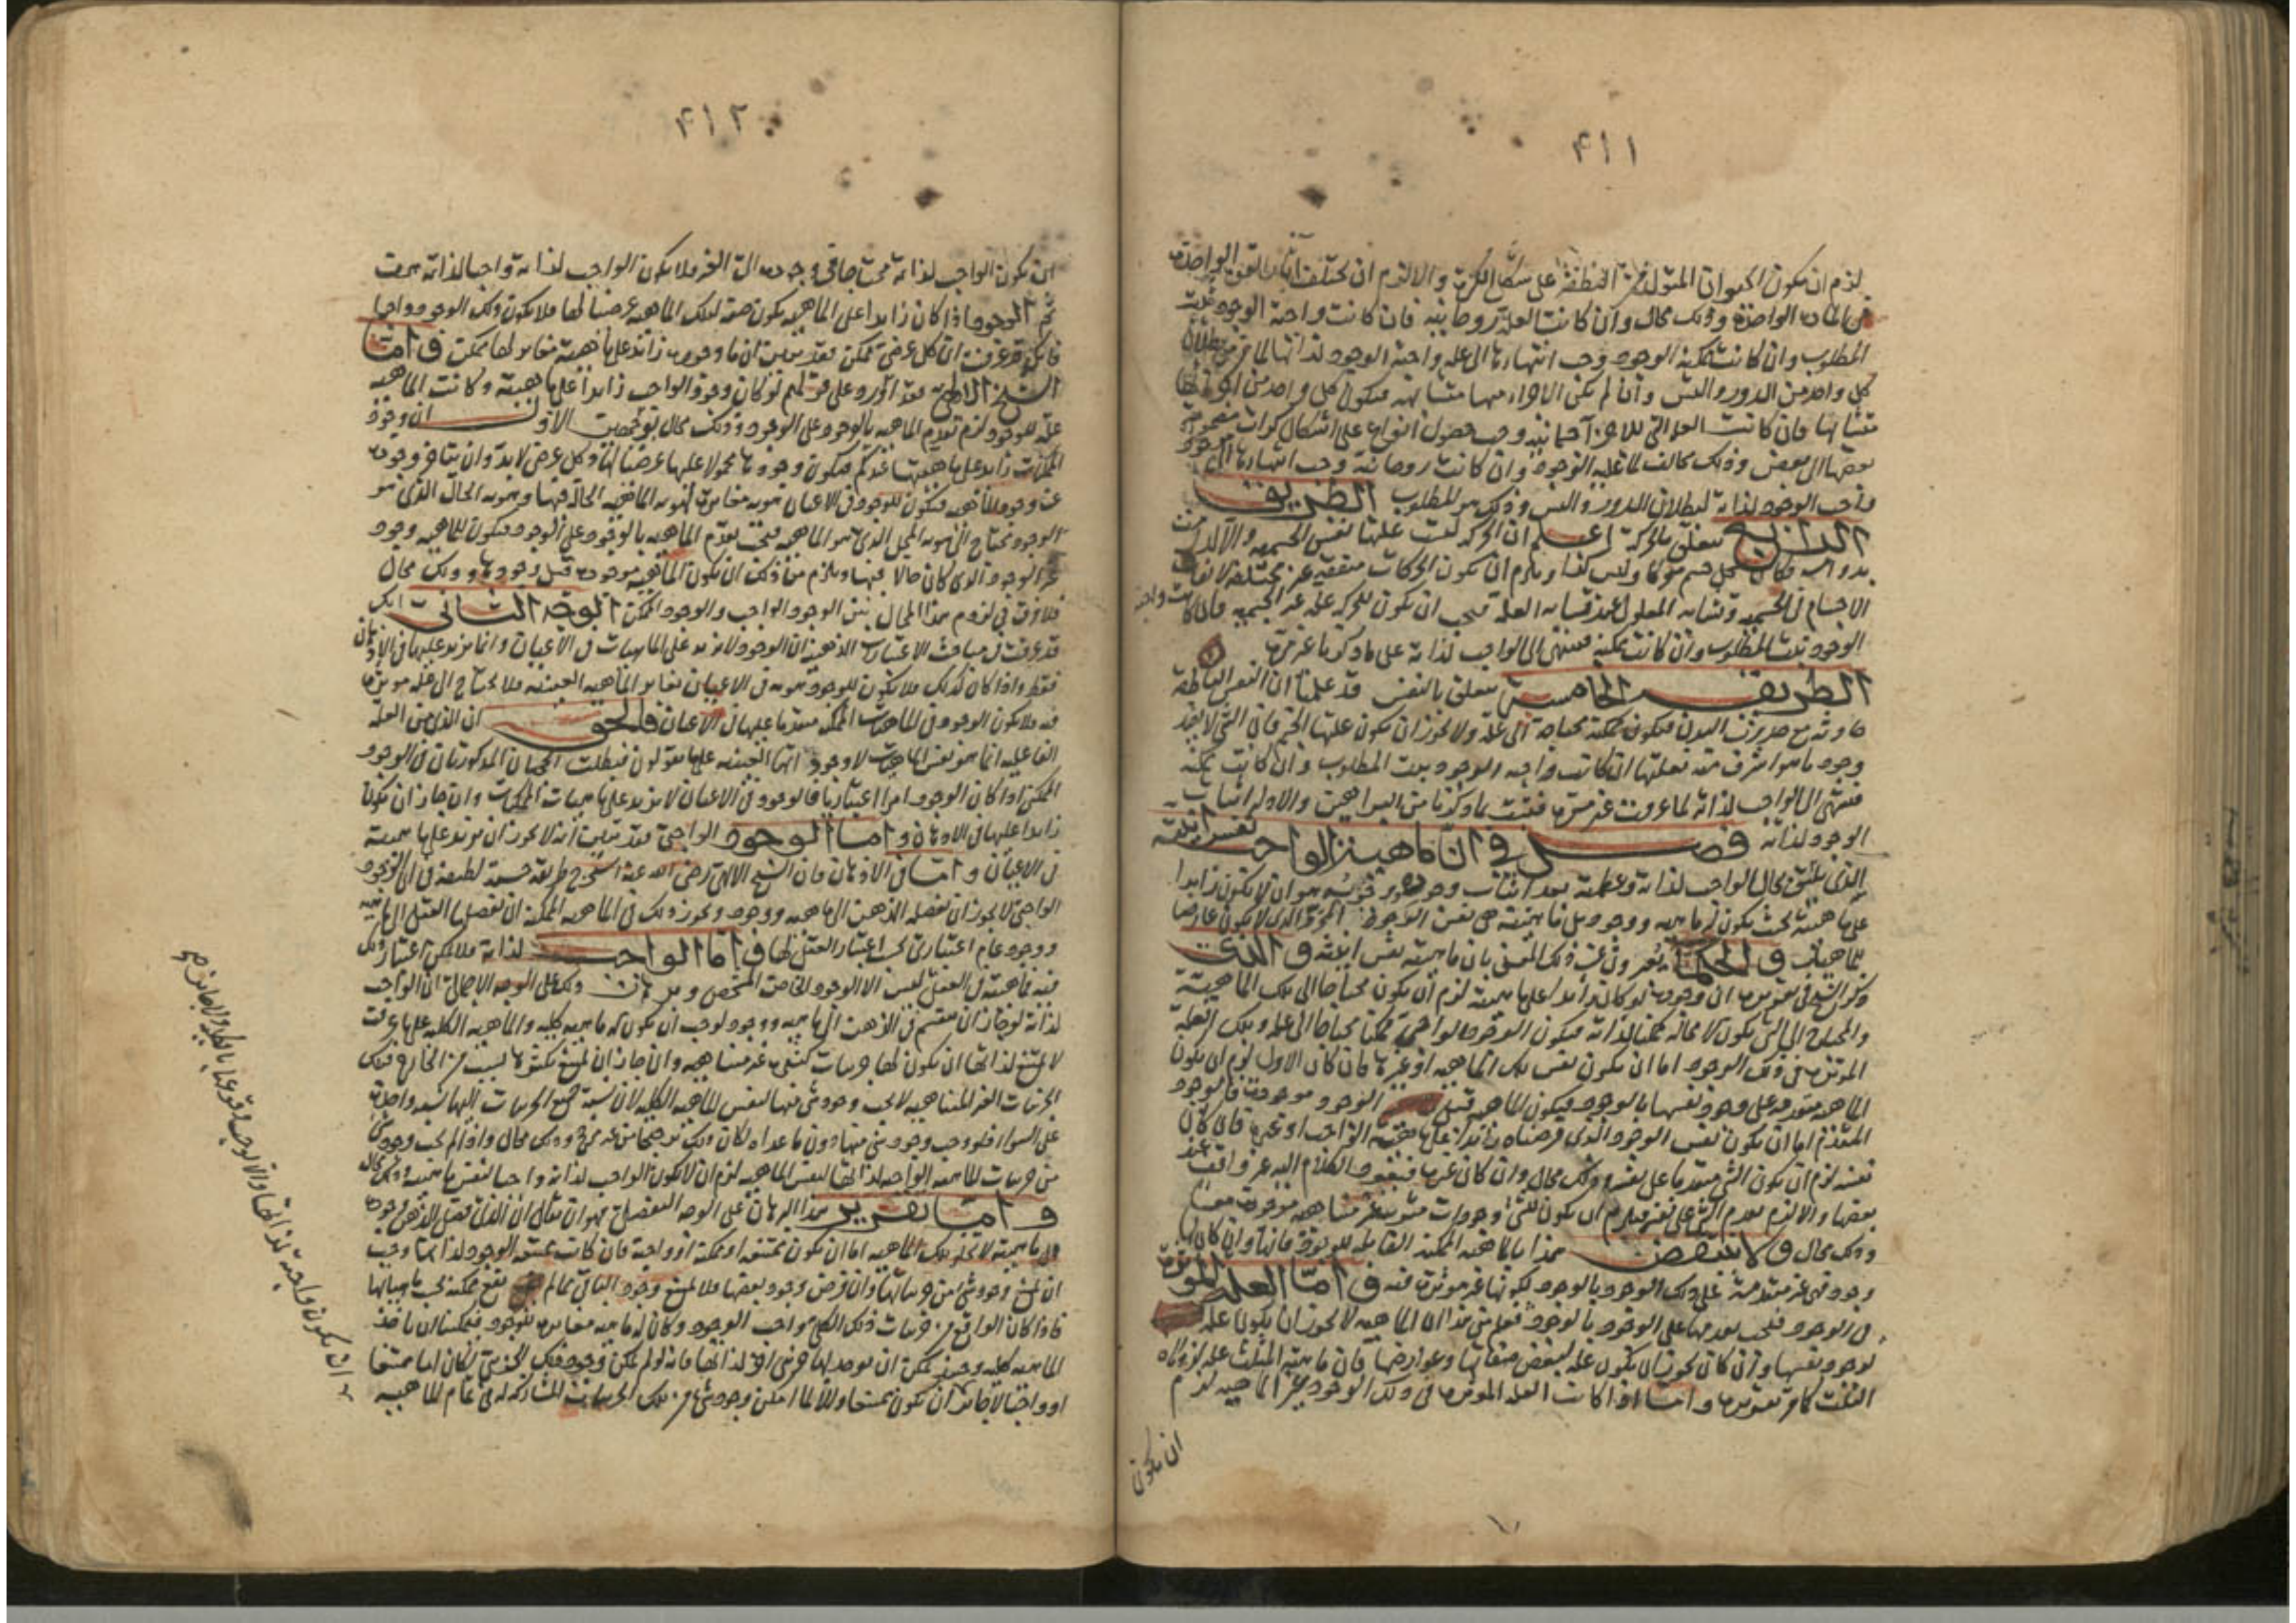 ٤١١
لزم ان يكون الحيوان المتولد من النطفة على شكل الكرة والا لزم ان يختلف آثار القوة الواحدة
في المادة الواحدة وذلك محال وان كانت العلة روحانية فان كانت واجبة الوجود ثبت
المطلوب وان كانت ممكنة الوجود وجب انتهاؤها الى علة واجبة الوجود لذاتها لما مر من بطلان
كل واحد من الدور والتس وان لم يكن الاجزاء منها متشابهة فيكون كل واحد من اجزائها
متشابها فان كانت العلة التي للاجزاء جسمانية وجب حصول انواع على اشكال كرات مضمومة
بعضها الى بعض وذلك مخالف لما عليه الوجود وان كانت روحانية وجب انتهاؤها الى
واجب الوجود لذاته لبطلان الدور والتس وذلك هو المطلوب الطريقة
الرابع يتعلق بالحركة اعلم ان الحركة ليست علتها نفس الجسمية والا لدامت
بدوامه فكان كل جسم متحركا وليس كذا ويلزم ان يكون الحركات متفقة غير مختلفة لاتفاق
الاجسام في الجسمية وتشابه المعلول عند تشابه العلة فيجب ان يكون للحركة علة غير الجسمية فان كانت واجبة
الوجود ثبت المطلوب وان كانت ممكنة فينتهي الى الواجب لذاته على ما ذكرنا غير مرة
الطريقة الخامسة يتعلق بالنفس قد علمنا ان النفس الناطقة
حادثة مع حدوث البدن فيكون ممكنة محتاجة الى علة ولا يجوز ان يكون علتها الجسم فان الشئ لا يفيد
وجود ما هو اشرف منه فعلتها ان كانت واجبة الوجود ثبت المطلوب وان كانت ممكنة
فينتهي الى الواجب لذاته لما عرفت غير مرة فثبت بما ذكرنا من البراهين والادلة اثبات
الوجود لذاته فصل في ان ماهية الواجب نفس انيته
الذي يليق بجلال الواجب لذاته وعظمته بعد اثبات وجوده هو ان لا يكون زايدا
على ماهيته بحيث يكون له ماهية ووجود بل ماهيته هي نفس الوجود المجرد الذي لا يكون عارضا
لماهيات والحكماء يعبرون عن ذلك المعنى بان ماهيته نفس انيته والذي
ذكر الشيخ في تقريره ان وجوده لو كان زايدا على ماهيته لزم ان يكون محتاجا الى تلك الماهية
والمحتاج الى الشئ يكون لا محالة ممكنا لذاته فيكون الوجود الواجبي ممكنا محتاجا الى علة وتلك العلة
المؤثرة في ذلك الوجود اما ان يكون نفس تلك الماهية او غيرها فان كان الاول لزم ان يكون
الماهية متقدمة على وجود نفسها بالوجود فيكون الماهية قبل الوجود موجودة فالوجود
المتقدم اما ان يكون نفس الوجود الذي فرضناه زايدا على ماهية الواجب او غيره فان كان
نفسه لزم ان يكون الشئ متقدما على نفسه وذلك محال وان كان غيره فيعود الكلام اليه
بعضها والا لزم تقدم الشئ على نفسه فيلزم ان يكون للشئ وجودات مترتبة غير متناهية موجودة معا
وذلك محال ولا ينتقض هذا بالماهية الممكنة القابلة للوجود فانها وان كانت
وجود فهي غير متقدمة على ذلك الوجود بالوجود لكونها غير مؤثرة فيه واما العلة المؤثرة
في الوجود فيجب تقدمها على الوجود بالوجود فعلم من هذا ان الماهية لا يجوز ان يكون علة
لوجود نفسها وان كان يجوز ان يكون علة لبعض صفاتها وعوارضها فان ماهية المثلث علة لزواياه
الثلث كما مر تقريرها واما اذا كانت العلة المؤثرة في ذلك الوجود غير الماهية لزم
ان يكون
٤١٢
ان يكون الواجب لذاته محتاجا في وجوده الى الغير فلا يكون الواجب لذاته واجبا لذاته هف
ثم الوجود اذا كان زايدا على الماهية يكون صفة لتلك الماهية عرضيا لها فلا يكون ذلك الوجود واجبا
فانك قد عرفت ان كل عرضي ممكن فقد تبين ان ما وجوده زايد على ماهيته مغاير لها ممكن واما
الشيخ الالهي فقد اورد على قولهم لو كان وجود الواجب زايدا على ماهيته وكانت الماهية
علة للوجود لزم تقدم الماهية بالوجود على الوجود وذلك محال بوجهين الاول ان وجود
الممكنات زايد على ماهيتها عندكم فيكون وجودها محمولا عليها عرضيا لها وكل عرضي لابد وان يتاخر وجوده
عن وجود الماهية فيكون للوجود في الاعيان هوية مغايرة لهوية الماهية الحالة فيها وهوية الحال الذي هو
الوجود يحتاج الى هوية المحل الذي هو الماهية فيجب تقدم الماهية بالوجود على الوجود فيكون للماهية وجود
غير الوجود الذي كان حالا فيها ويلزم من ذلك ان يكون الماهية موجودة قبل وجودها وذلك محال
فلا فرق في لزوم هذا المحال بين الوجود الواجب والوجود الممكن الوجه الثاني انك
قد عرفت في مباحث الاعتبارات الذهنية ان الوجود لا يزيد على الماهيات في الاعيان وانما يزيد عليها في الاذهان
فقط واذا كان كذلك فلا يكون للوجود هوية في الاعيان تغاير الماهية العينية فلا يحتاج الى علة مؤثرة
فيه فلا يكون الوجود في الماهيات الممكنة متقدما عليها في الاعيان فالحق ان الذي من العلة
الفاعلية انما هو نفس الماهيات لا وجود انها العينية على ما يقولون فبطلت الحجتان المذكورتان في الوجود
الممكن اذا كان الوجود امرا اعتباريا فالوجود في الاعيان لا يزيد على ماهيات الممكنات وان جاز ان يكون
زايدا عليها في الاذهان واما الوجود الواجبي فقد تبين انه لا يجوز ان يزيد على ماهيته
في الاعيان واما في الاذهان فان الشيخ الالهي رضي الله عنه استخرج طريقة حسنة لطيفة في ان الوجود
الواجبي لا يجوز ان يفصله الذهن الى ماهية ووجود ويجوز ذلك في الماهية الممكنة ان يفصلها العقل الى ماهية
ووجود عام اعتباري بحسب اعتبار العقل لها واما الواجب لذاته فلا يمكن اعتبار ذلك
فيه فماهيته في العقل ليس الا الوجود الخاص المتخصص وبرهان ذلك على الوجه الاجمالي ان الواجب
لذاته لو جاز ان ينقسم في الذهن الى ماهية ووجود لوجب ان يكون له ماهية كلية والماهية الكلية على ما عرفت
لا يمتنع لذاتها ان يكون لها جزئيات كثيرة غير متناهية وان جاز ان يمتنع بسبب من الخارج فتلك
الجزئيات الغير المتناهية لا يجب وجود شئ منها لنفس الماهية الكلية لان نسبة جميع الجزئيات اليها نسبة واحدة
على السواء فلو وجب وجود شئ منها دون ما عداه لكان ذلك ترجيحا من غير مرجح وذلك محال واذا لم يجب وجود شئ
من جزئيات الماهية الواجبة لذاتها لنفس الماهية لزم ان لا يكون الواجب لذاته واجبا لنفس ماهيته وذلك محال
واما تقرير هذا البرهان على الوجه التفصيلي فهو ان يقال ان الذي فصل الذهن وجوده
الى ماهيته لا يخلو تلك الماهية اما ان يكون ممتنعة او ممكنة او واجبة فان كانت ممتنعة الوجود لذاتها وجب
ان يمتنع وجود شئ من جزئياتها وان فرض وجود بعضها فلا يمتنع وجود الباقي مما لم يقع ممكنة بحسب ماهياتها
فاذا كان الواقع من جزئيات ذلك الكلي هو واجب الوجود وكان له ماهية مغايرة للوجود فيمكننا ان ناخذ
الماهية كلية وحينئذ يمكن ان يوجد لها جزئي اخر لذاتها فانه لو لم يمكن وجود ذلك الجزئي لكان اما ممتنعا
او واجبا لا جائز ان يكون ممتنعا والا لما امكن وجود شئ من تلك الجزئيات المشاركة له في تمام الماهية